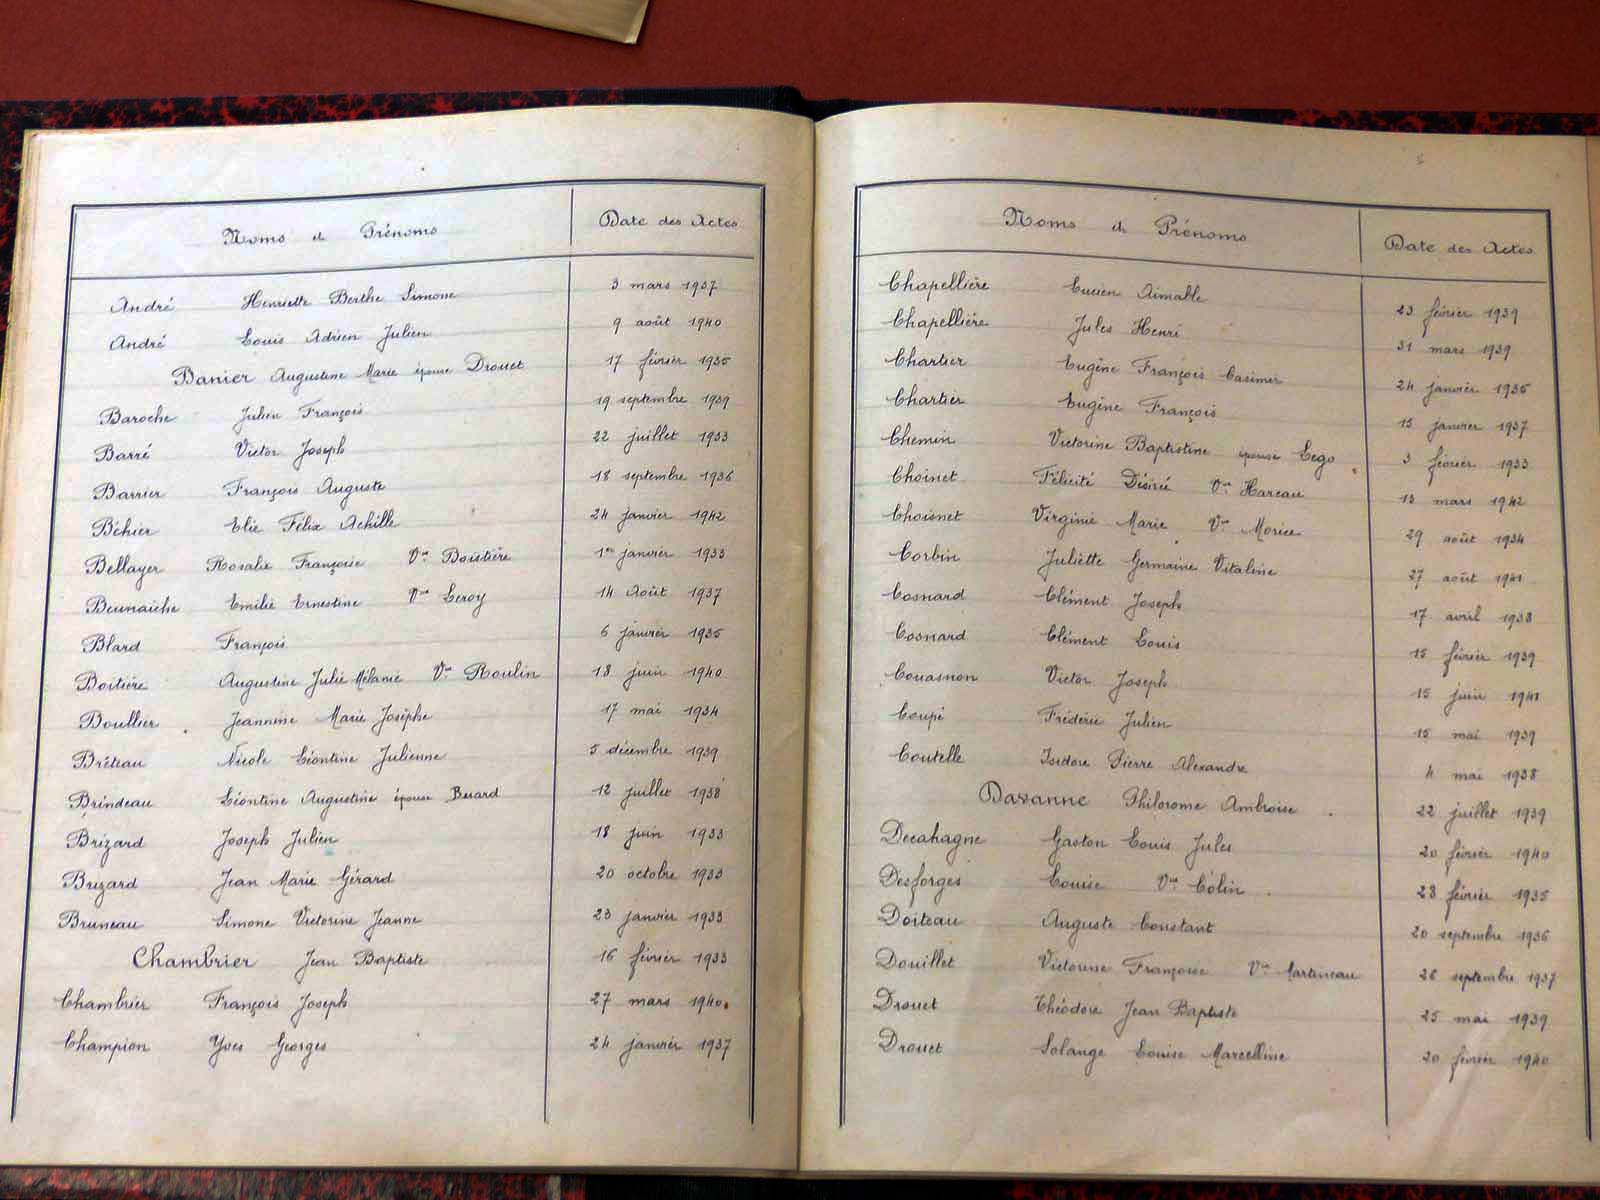 Noms et Prénoms Date des Actes
André Henriette Berthe Simone 3 mars 1937
André Louis Adrien Julien 9 août 1940
Banier Augustine Marie épouse Drouet 17 février 1935
Baroche Julien François 19 septembre 1939
Barré Victor Joseph 22 juillet 1933
Barrier François Auguste 18 septembre 1936
Béhier Elie Félix Achille 24 janvier 1942
Bellayer Rosalie Françoise Vve Boistière 1er janvier 1933
Beunaiche Emilie Ernestine Vve Leroy 14 Août 1937
Blard François 6 janvier 1935
Boitière Augustine Julie Mélanie Vve Roulin 13 juin 1940
Boullier Jeannine Marie Josèphe 17 mai 1934
Bréteau Nicole Léontine Julienne 5 décembre 1939
Brindeau Léontine Augustine épouse Besard 12 juillet 1938
Brizard Joseph Julien 18 juin 1933
Brizard Jean Marie Gérard 20 octobre 1933
Bruneau Simone Victorine Jeanne 23 janvier 1933
Chambrier Jean Baptiste 16 février 1933
Chambrier François Joseph 27 mars 1940
Champion Yves Georges 24 janvier 1937
Noms et Prénoms Date des Actes
Chapellière Lucien Aimable 23 février 1939
Chapellière Jules Henri 31 mars 1939
Chartier Eugène François Casimir 24 janvier 1935
Chartier Eugène François 15 janvier 1937
Chemin Victorine Baptistine épouse Lego 3 février 1933
Choinet Félicité Désirée Vve Hareau 13 mars 1942
Choisnet Virginie Marie Vve Morice 29 août 1934
Corbin Juliette Germaine Vitaline 27 août 1941
Cosnard Clément Joseph 17 avril 1938
Cosnard Clément Louis 15 février 1939
Couasnon Victor Joseph 15 juin 1941
Coupé Frédéric Julien 15 mai 1939
Coutelle Isidore Pierre Alexandre 4 mai 1938
Davanne Philorome Ambroise 22 juillet 1939
Decahagne Gaston Louis Jules 20 février 1940
Desforges Louise Vve Colin 23 février 1935
Doiteau Auguste Constant 20 septembre 1936
Douillet Victorine Françoise Vve Martineau 26 septembre 1937
Drouet Théodore Jean Baptiste 25 mai 1939
Drouet Solange Louise Marcelline 20 février 1940